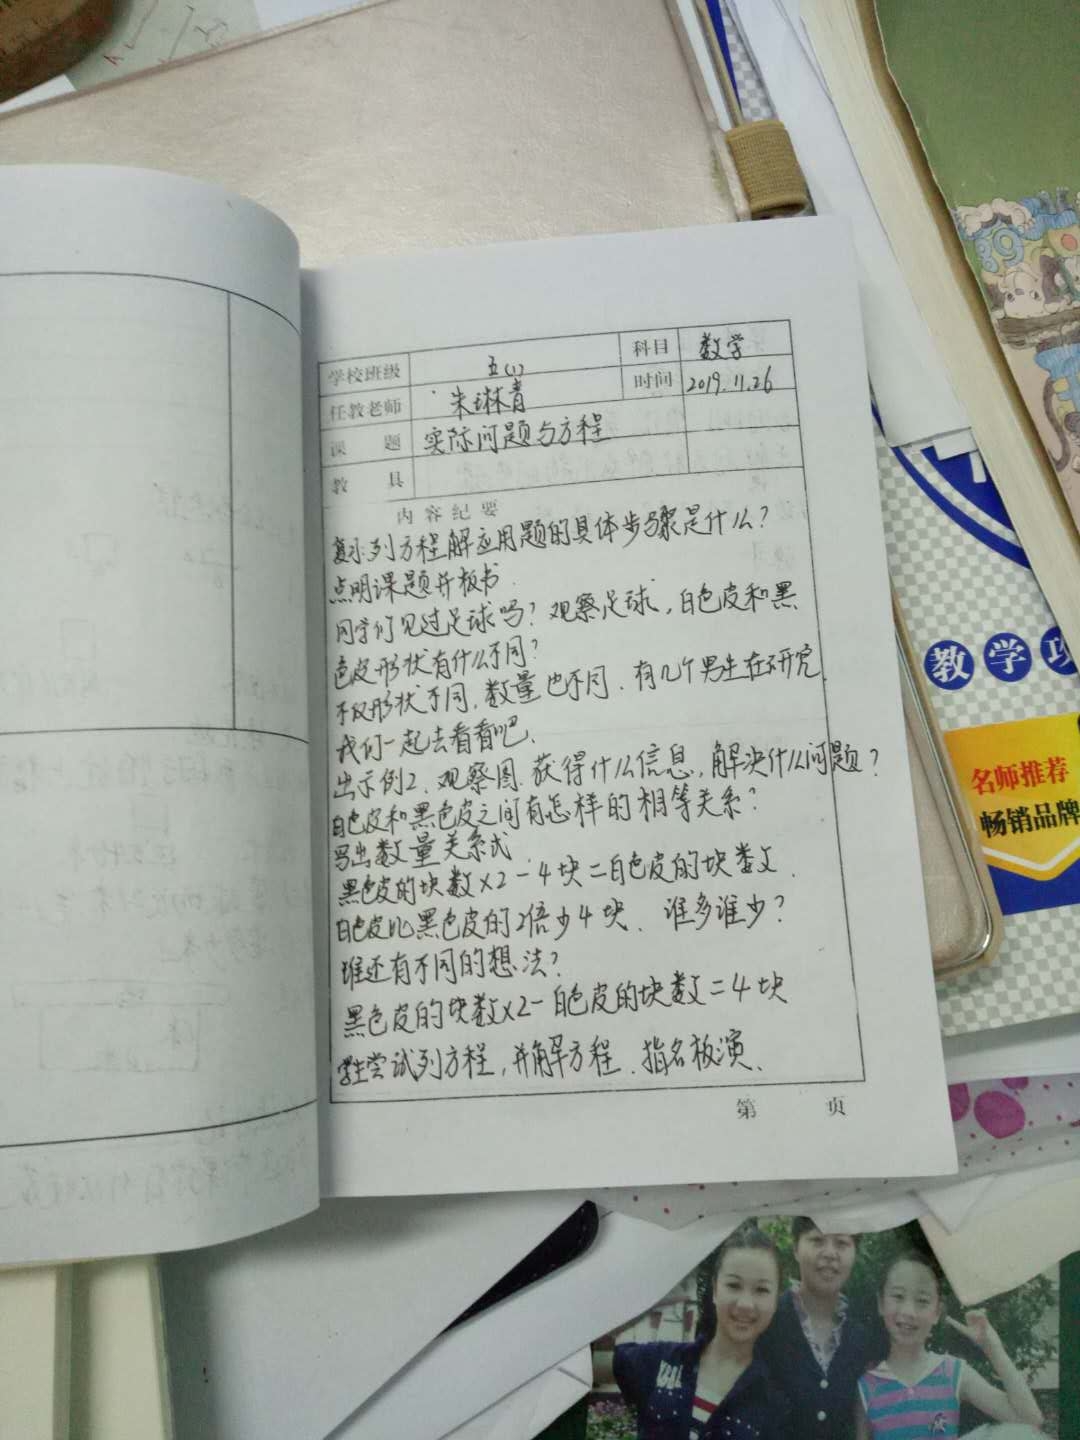 学校班级 五(1) 科目 数学
任教老师 朱琳青 时间 2019.11.26
课 题 实际问题与方程
教 具
内容纪要
复习列方程解应用题的具体步骤是什么？
点明课题并板书.
同学们见过足球吗？观察足球，白色皮和黑
色皮形状有什么不同？
不仅形状不同，数量也不同．有几个男生在研究
我们一起去看看吧、
出示例2、观察图．获得什么信息，解决什么问题？
白色皮和黑色皮之间有怎样的相等关系？
写出数量关系式
黑色皮的块数×2－4块＝白色皮的块数．
白色皮比黑色皮的2倍少4块、谁多谁少？
谁还有不同的想法？
黑色皮的块数×2－白色皮的块数＝4块
学生尝试列方程，并解方程．指名板演、
第 页
教学
名师推荐
畅销品牌